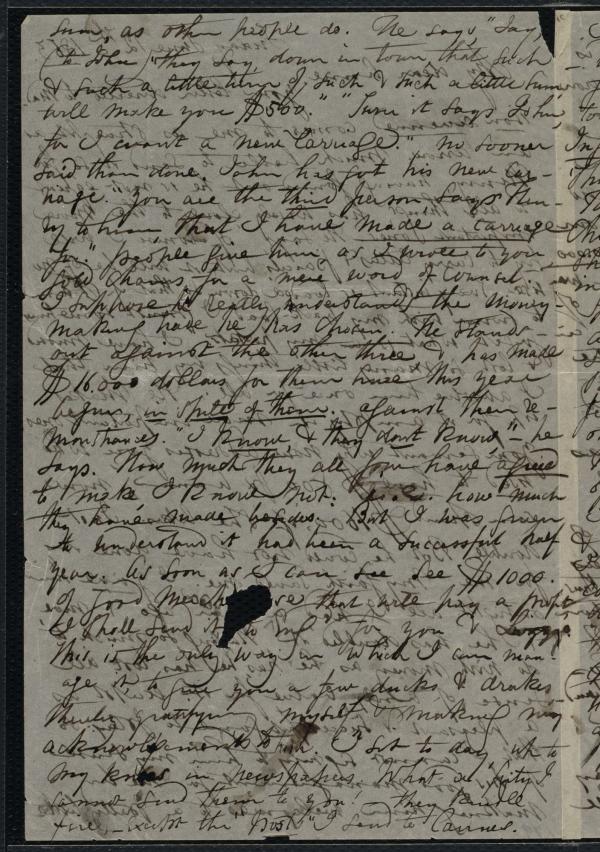 sum, as other people do. He says, "Say,
to John "they say, down in town, that such
& such a little turn of such & such a little sum
will make you $500." "Turn it says John,
for I want a new Carriage." no sooner
said than done. John has got his new Car-
riage. "You are the third person says Hen-
ry to him that I have made a carriage
for." people give him, as I wrote to you
gold chains for a mere word of counsel.
I suppose he really understands the money-
making he has chosen. He stands
out against the other three & has made
$16.000 dollars for them since this year
began, in spite of them. against their re-
monstrances. "I know, & they dont know" - he
says. How much they all four have agreed
to make I know not. i.e. how much
they have made besides. But I was given
to understand it had been a successful half
year. As soon as I can see $1000.
of good that will pay a profit
I shall send it to Eng for you &
This is the only way in which I can man-
age it to give you a few ducks & drakes
thereby gratifying myself & making my
acknowledgements I sit to day up to
my knees in newspapers. What a pity I
cannot send them to you! they kindle
fire - except the "Post" I send to Cannes.